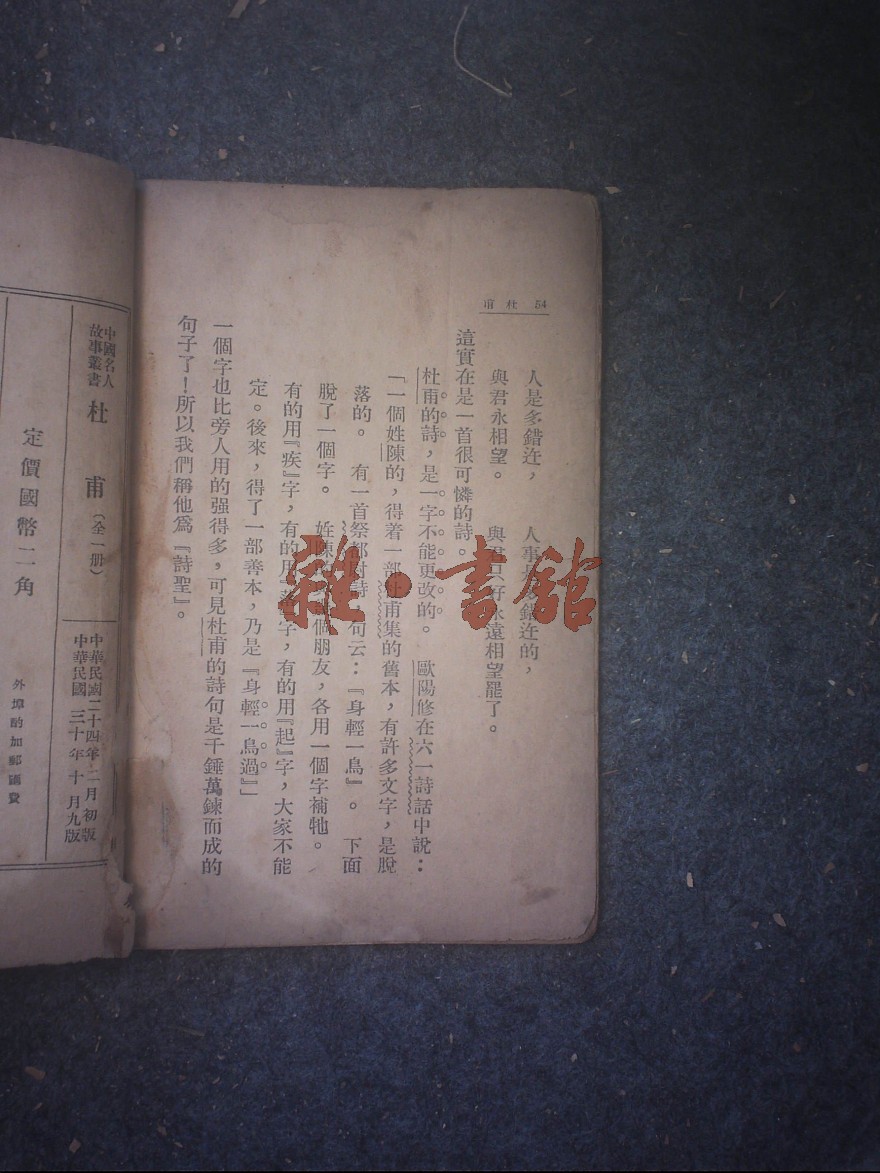 54 杜甫
人是多錯迕， 人事是 錯迕的，
與君永相望。 與君只好永遠相望罷了。
這實在是一首很可憐的詩。
杜甫的詩，是一字不能更改的。 歐陽修在六一詩話中說：
『一個姓陳的，得着一部杜甫集的舊本，有許多文字，是脫
落的。 有一首 都尉詩 句云：『身輕一鳥』。 下面
脫了一個字。 姓陳 個朋友，各用一個字補牠。
有的用『疾』字，有的用 字，有的用『起』字，大家不能
定。後來，得了一部善本，乃是『身輕一鳥過』』
一個字也比旁人用的强得多，可見杜甫的詩句是千錘萬鍊而成的
句子了！所以我們稱他爲『詩聖』。
中國名人故事叢書 杜甫（全一册）
中華民國二十四年二月初版
中華民國三十年十月九版
定價國幣二角
外埠酌加郵匯費
雜·書館